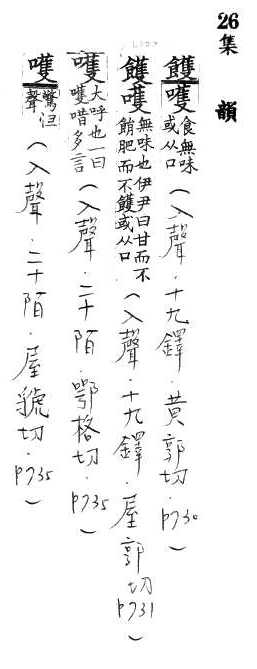 26集 韻
䨼嚄食無味或从口（入聲．十九鐸．黃郭切．p730）
䨼嚄無味也伊尹曰甘而不䬼肥而不䨼或从口（入聲．十九鐸．屋郭切p731）
嚄大呼也一曰嚄唶多言（入聲．二十陌．鄂格切．p735）
嚄驚怛聲（入聲．二十陌．屋虢切．p735）